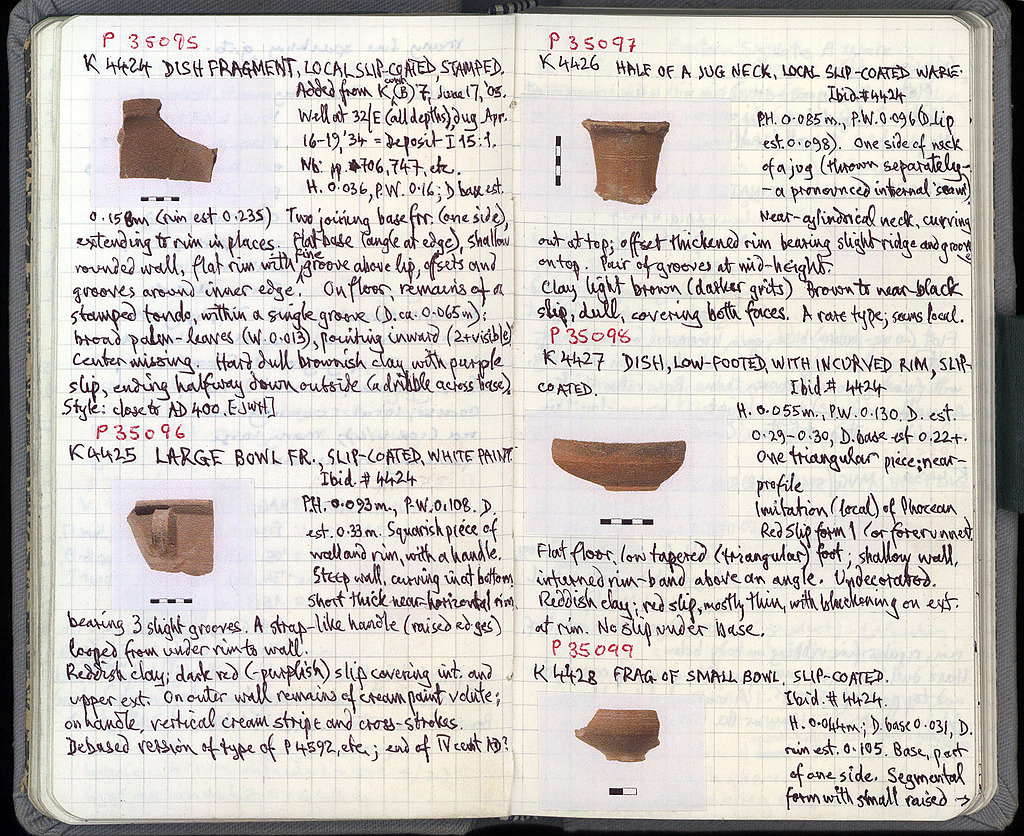 P 35095
K 4424 DISH FRAGMENT, LOCAL SLIP-COATED, STAMPED.
Added from K 7, June 17, '05.
Well at 32/E (all depths), dug Apr.
16-19, '34 = Deposit I 15:1.
Nb. pp. 706, 747, etc.
H. 0.036, P.W. 0.16; D base est.
0.15 m (rim est 0.235) Two joining base frr. (one side),
extending to rim in places. Flat base (angle at edge), shallow
rounded wall, flat rim with fine groove above lip, offsets and
grooves around inner edge. On floor, remains of a
stamped tondo, within a single groove (D. ca. 0.065 m):
broad palm-leaves (W. 0.013), pointing inward (2+ visible)
Center missing. Hard dull brownish clay, with purple
slip, ending halfway down outside (a dribble across base).
Style: close to AD 400. [JWH]
P 35096
K 4425 LARGE BOWL FR., SLIP-COATED, WHITE PAINT.
Ibid. # 4424
P.H. 0.093 m., P.W. 0.108. D.
est. 0.33 m. Squarish piece of
wall and rim, with a handle.
Steep wall, curving in at bottom,
short thick near-horizontal rim
bearing 3 slight grooves. A strap-like handle (raised edges)
looped from under rim to wall.
Reddish clay; dark red (-purplish) slip covering int. and
upper ext. On outer wall remains of cream paint volute;
on handle, vertical cream stripe and cross-strokes.
Debased version of type of P 4592, etc.; end of IV cent AD?
P 35097
K 4426 HALF OF A JUG NECK, LOCAL SLIP-COATED WARE.
Ibid. # 4424
P.H. 0.085 m., P.W. 0.096 (D. lip
est. 0.098). One side of neck
of a jug (thrown separately-
- a pronounced internal seam)
Near-cylindrical neck, curving
out at top; offset thickened rim bearing slight ridge and groove
on top. Pair of grooves at mid-height.
Clay light brown (darker grits) Brown to near-black
slip, dull, covering both faces. A rare type; seems local.
P 35098
K 4427 DISH, LOW-FOOTED, WITH INCURVED RIM, SLIP-
COATED. Ibid. # 4424
H. 0.055 m., P.W. 0.130. D. est.
0.29-0.30, D. base est 0.22+.
One triangular piece; near-
profile
Imitation (local) of Phocean
Red Slip form 1 (or forerunner).
Flat floor, low tapered (triangular) foot; shallow wall,
inturned rim-band above an angle. Undecorated.
Reddish clay; red slip, mostly thin, with blackening on ext.
at rim. No slip under base.
P 35099
K 4428 FRAG OF SMALL BOWL, SLIP-COATED.
Ibid. # 4424.
H. 0.044 m; D. base 0.031, D.
rim est. 0.105. Base, part
of one side. Segmental
form with small raised →